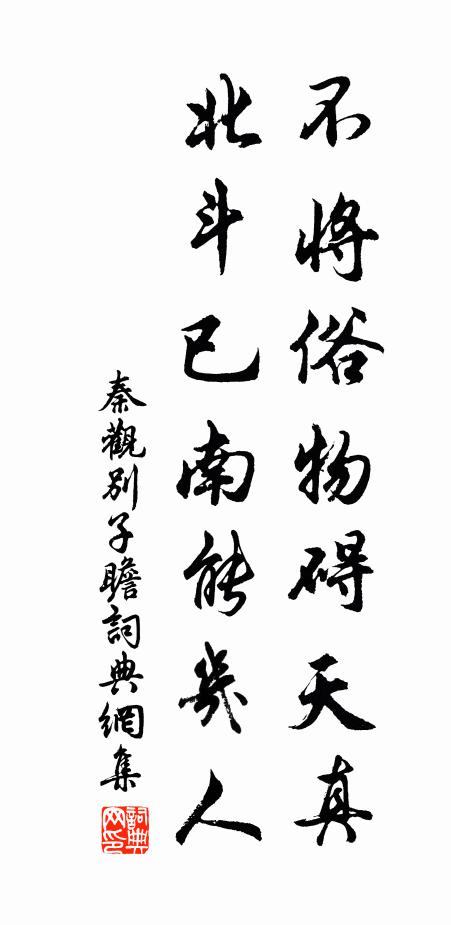 不将俗物碍天真
北斗已南能幾人
秦觀别子瞻詞典網集
詞典網印